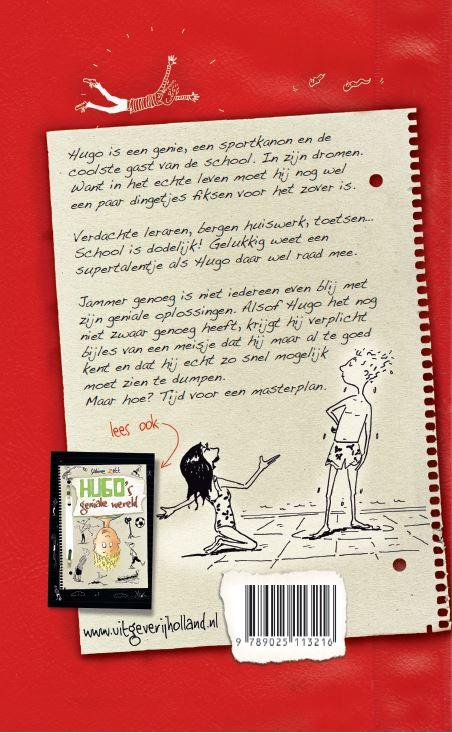 Hugo is een genie, een sportkanon en de
coolste gast van de school. In zijn dromen.
Want in het echte leven moet hij nog wel
een paar dingetjes fiksen voor het zover is.
Verdachte leraren, bergen huiswerk, toetsen...
School is dodelijk! Gelukkig weet een
supertalentje als Hugo daar wel raad mee.
Jammer genoeg is niet iedereen even blij met
zijn geniale oplossingen. Alsof Hugo het nog
niet zwaar genoeg heeft, krijgt hij verplicht
bijles van een meisje dat hij maar al te goed
kent en dat hij echt zo snel mogelijk
moet zien te dumpen.
Maar hoe? Tijd voor een masterplan.
lees ook
Sabine Zett
HUGO's
geniale wereld
www.uitgeverijholland.nl
9 789025 113216